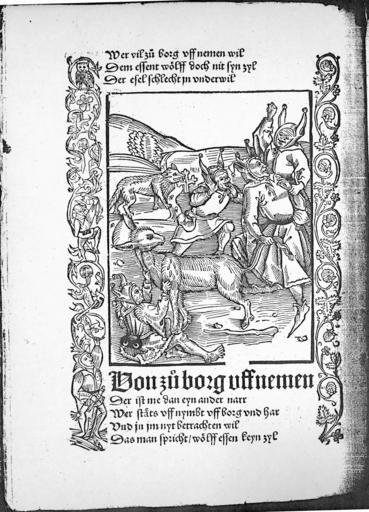 Wer vil zů borg vff nemen wil
Dem essent wölff doch nit syn zyl
Der esel schlecht jn vnderwil
Von zů borg vff nemen
Der ist me dan eyn ander narr
Wer stäts vff nymbt vff borg vnd har
Vnd jn jm nyt betrachten wil
Das man spricht / wölff essen keyn zyl